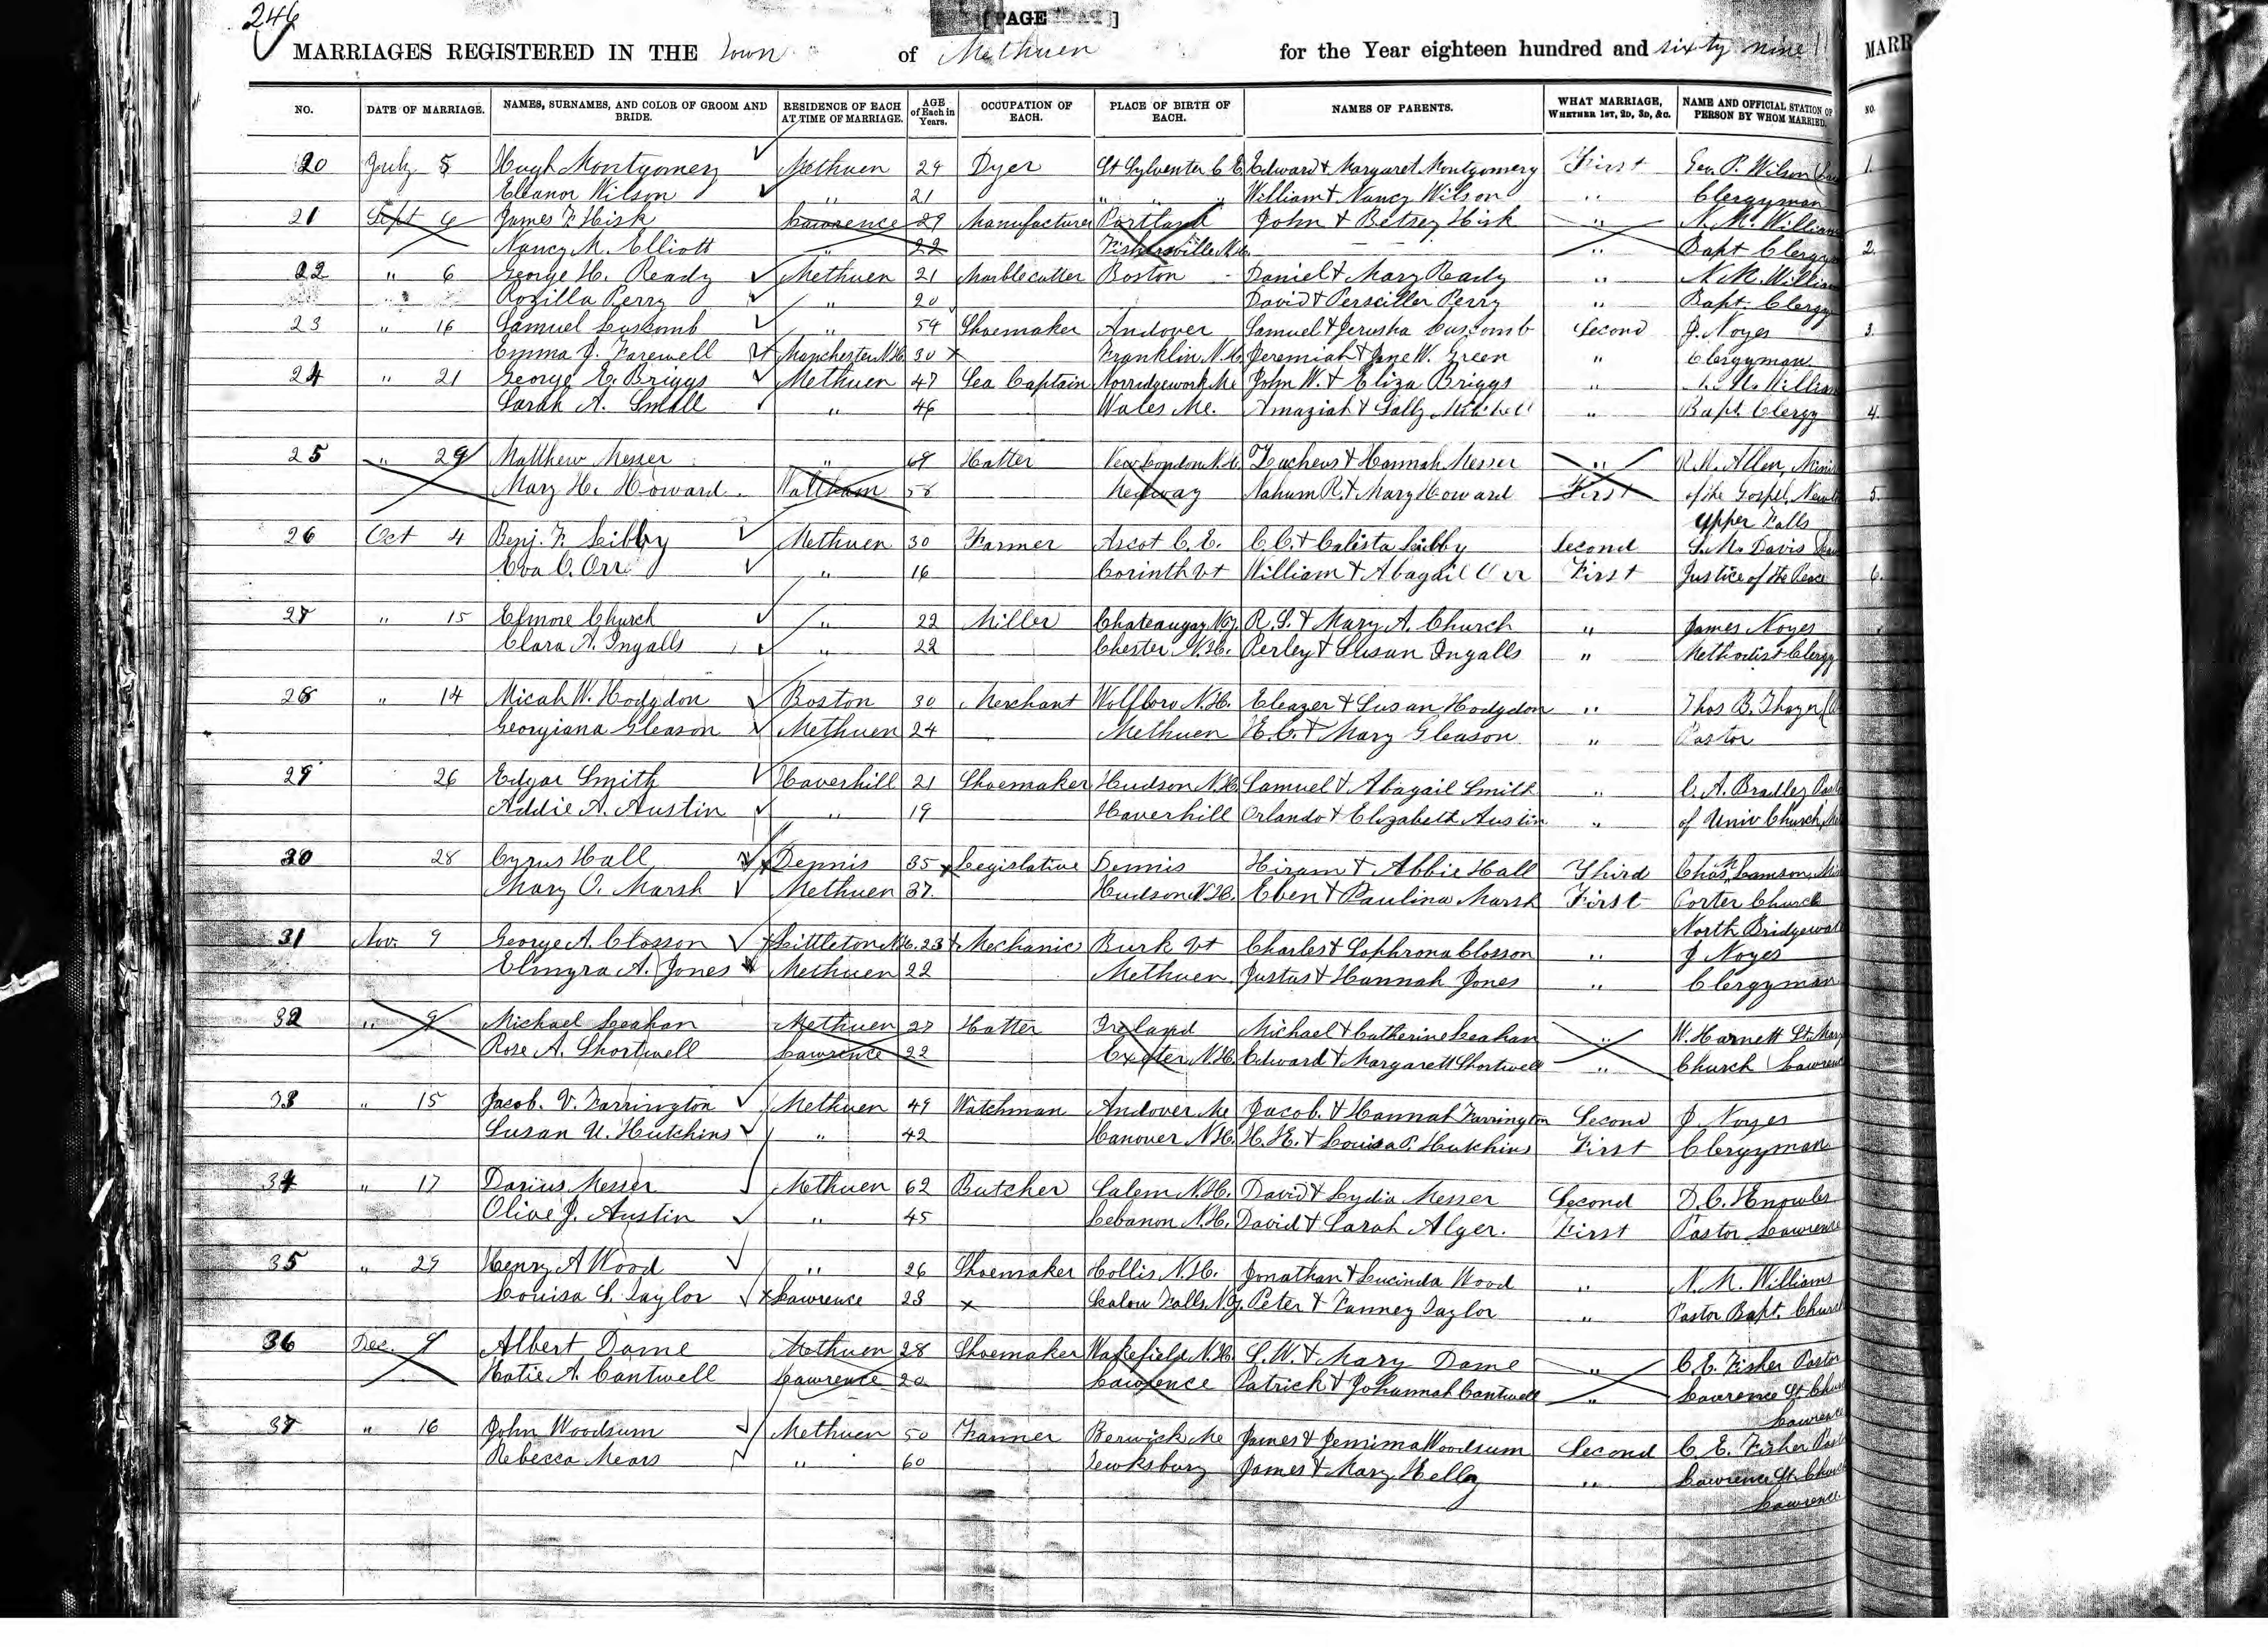 246
[PAGE ]
MARRIAGES REGISTERED IN THE Town of Methuen for the Year eighteen hundred and sixty nine
MARR
NO. DATE OF MARRIAGE. NAMES, SURNAMES, AND COLOR OF GROOM AND BRIDE. RESIDENCE OF EACH AT TIME OF MARRIAGE. AGE of Each in Years. OCCUPATION OF EACH. PLACE OF BIRTH OF EACH. NAMES OF PARENTS. WHAT MARRIAGE, WHETHER 1ST, 2D, 3D, &C. NAME AND OFFICIAL STATION OF PERSON BY WHOM MARRIED. NO.
20 July 5 Hugh Montgomery Methuen 24 Dyer St Sylvester C.E. Edward & Margaret Montgomery First Geo. P. Wilson 1.
Eleanor Wilson " 21 " " " William & Nancy Wilson " Clergyman
21 Sept 6 James F. Hisk Lawrence 29 Manufacturer Portland John & Betsey Hisk " N. M. William
Nancy M. Elliott " 22 Fishersville N.H. " Bapt Clergym 2.
22 " 6 George H. Ready Methuen 21 Marblecutter Boston Daniel & Mary Ready " N. M. William
Rozilla Perry " 20 David & Persciller Perry " Bapt. Clergy
23 " 16 Samuel Luscomb " 54 Shoemaker Andover Samuel & Jerusha Luscomb Second J. Noyes 3.
Emma J. Farewell Manchester N.H. 30 x Franklin N.H. Jeremiah & Jane W. Green " Clergyman
24 " 21 George E. Briggs Methuen 47 Sea Captain Norridgework Me John W. & Eliza Briggs " N. M. William
Sarah A. Small " 46 Wales Me. Amaziah & Sally Mitchell " Bapt. Clergy 4.
25 " 29 Matthew Messer " 69 Hatter New London N.H. Zacheus & Hannah Messer " R. M. Allen, Minis
Mary H. Howard Waltham 58 Medway Nahum R. & Mary Howard First of the Gospel, Newt 5.
Upper Falls
26 Oct 4 Benj. F. Libby Methuen 30 Farmer Ascot C.E. C. C. & Calista Libby Second S. M. Davis
Eva C. Orr " 16 Corinth Vt William & Abagail Orr First Justice of the Peace 6.
27 " 15 Elmore Church " 22 Miller Chateaugay N.Y. R. S. & Mary A. Church " James Noyes
Clara A. Ingalls " 22 Chester N.H. Perley & Susan Ingalls " Methodist Clergy
28 " 14 Micah W. Hodgdon Boston 30 Merchant Wolfboro N.H. Eleazer & Susan Hodgdon " Thos B. Thayer
Georgiana Gleason Methuen 24 Methuen E. C. & Mary Gleason " Pastor
29 26 Edgar Smith Haverhill 21 Shoemaker Hudson N.H. Samuel & Abagail Smith " C. A. Bradley Past
Addie A. Austin " 19 Haverhill Orlando & Elizabeth Austin " of Univ Church
30 28 Cyrus Hall Dennis 35 x Legislative Dennis Hiram & Abbie Hall Third Chas Lamson, Min
Mary O. Marsh Methuen 37 Hudson N.H. Eben & Paulina Marsh First Porter Church
North Bridgewat
31 Nov. 9 George A. Closson x Littleton N.H. 23 x Mechanic Burk Vt Charles & Sophrona Closson " J Noyes
Elmyra A. Jones Methuen 22 Methuen Justus & Hannah Jones " Clergyman
32 " 9 Michael Leahan Methuen 27 Hatter Ireland Michael & Catherine Leahan " W. Harnett St. Mary
Rose A. Shortwell Lawrence 22 Exeter N.H. Edward & Margarett Shortwell " Church Lawrence
33 " 15 Jacob. V. Farrington Methuen 49 Watchman Andover Me Jacob. & Hannah Farrington Second J Noyes
Susan U. Hutchins " 42 Hanover N.H. H. H. & Louisa P. Hutchins First Clergyman
34 " 17 Darius Messer Methuen 62 Butcher Salem N.H. David & Lydia Messer Second D. C. Knowles
Olive J. Austin " 45 Lebanon N.H. David & Sarah Alger. First Pastor Lawrence
35 " 29 Henry A Wood " 26 Shoemaker Hollis N.H. Jonathan & Lucinda Wood " N. M. Williams
Louisa S. Taylor x Lawrence 23 x Falls N.Y. Peter & Fanney Taylor " Pastor Bapt. Church
36 Dec. 9 Albert Dame Methuen 28 Shoemaker Wakefield N.H. S. W. & Mary Dame " C. E. Fisher Pastor
Katie A. Cantwell Lawrence 20 Lawrence Patrick & Johannah Cantwell " Lawrence St. Chur
Lawrence
37 " 16 John Woodsum Methuen 50 Farmer Berwick Me James & Jemima Woodsum Second C. E. Fisher Past
Rebecca Mears " 60 Tewksbury James & Mary Kelly " Lawrence St. Chur
Lawrence